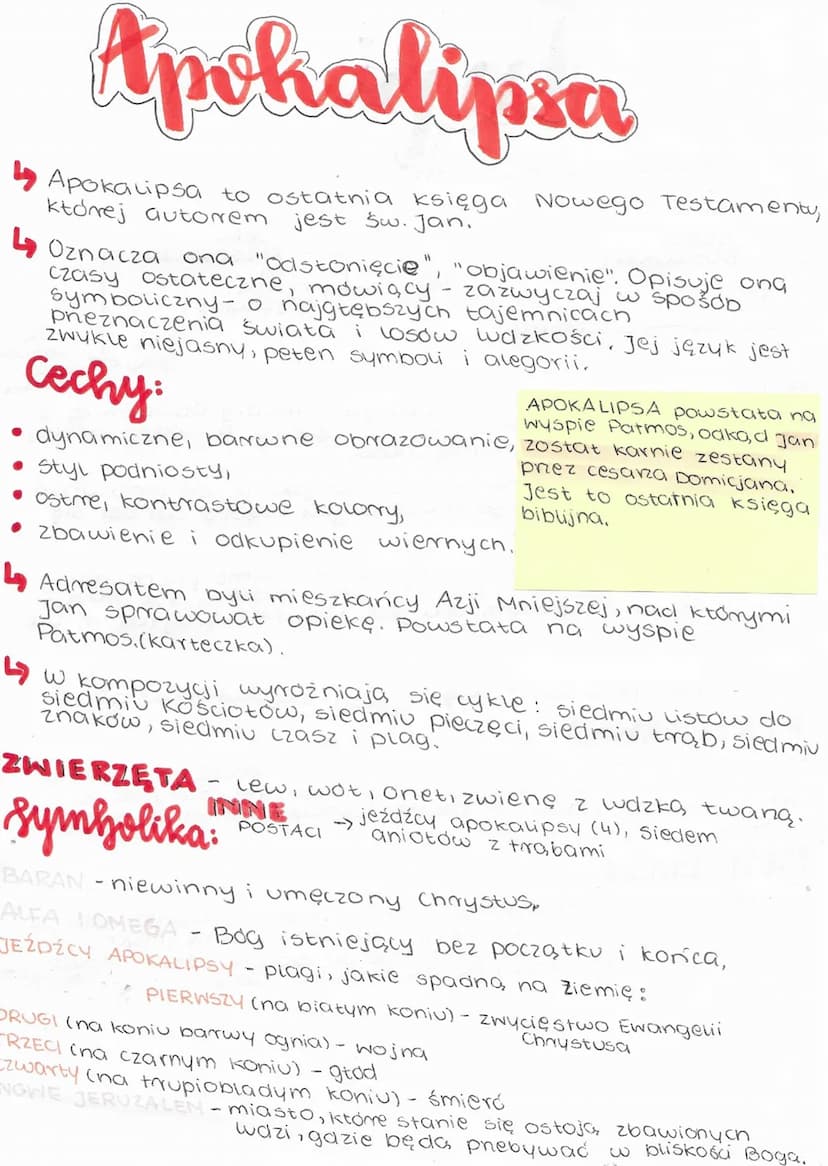 Apokalipsa
↳ Apokalipsa to ostatnia księga Nowego Testamentu,
której autorem jest św. Jan.
↳ Oznacza ona "odsłonięcie", "objawienie". Opisuje ona
czasy ostateczne, mówiący - zazwyczaj w sposób
symboliczny - o najgłębszych tajemnicach
przeznaczenia świata i losów ludzkości. Jej język jest
zwykle niejasny, pełen symboli i alegorii.
Cechy:
• dynamiczne, barwne obrazowanie,
• styl podniosły,
• ostre, kontrastowe kolory,
• zbawienie i odkupienie wiernych.
APOKALIPSA powstała na
wyspie Patmos, odkąd Jan
został karnie zesłany
przez cesarza Domicjana.
Jest to ostatnia księga
biblijna.
↳ Adresatem byli mieszkańcy Azji Mniejszej, nad którymi
Jan sprawował opiekę. Powstała na wyspie
Patmos. (karteczka).
↳ W kompozycji wyróżniają się cykle: siedmiu listów do
siedmiu kościołów, siedmiu pieczęci, siedmiu trąb, siedmiu
znaków, siedmiu czasz i plag.
ZWIERZĘTA - lew, wół, orzeł, zwierzę z ludzką twarzą.
INNE
POSTACI → jeźdźcy apokalipsy (4), siedem
aniołów z trąbami
Symbolika:
BARAN - niewinny i umęczony Chrystus,
ALFA I OMEGA - Bóg istniejący bez początku i końca,
JEŹDŹCY APOKALIPSY - plagi, jakie spadną na ziemię:
PIERWSZY (na białym koniu) - zwycięstwo Ewangelii
Chrystusa
DRUGI (na koniu barwy ognia) - wojna
TRZECI (na czarnym koniu) - głód
CZWARTY (na trupiobladym koniu) - śmierć
NOWE JERUZALEM - miasto, które stanie się ostoją zbawionych
ludzi, gdzie będą przebywać w bliskości Boga.